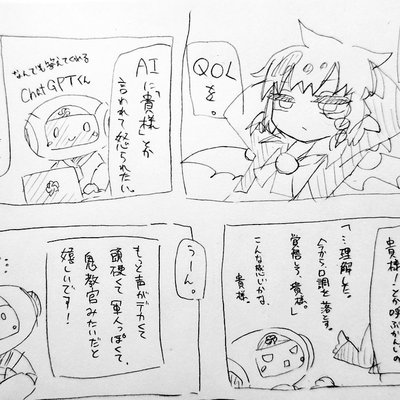 QOL
を。
AIに「貴様」とか
言われて怒られたい。
なんでも答えてくれる
ChatGPTくん
貴様!とか呼ぶかんじの
「…理解した。
今から口調を落とす。
覚悟しろ、貴様。」
こんな感じかな、
貴様。
うーん。
もっと声がデカくて
頭硬くて軍人っぽくて、
鬼教官みたいだと
嬉しいです!